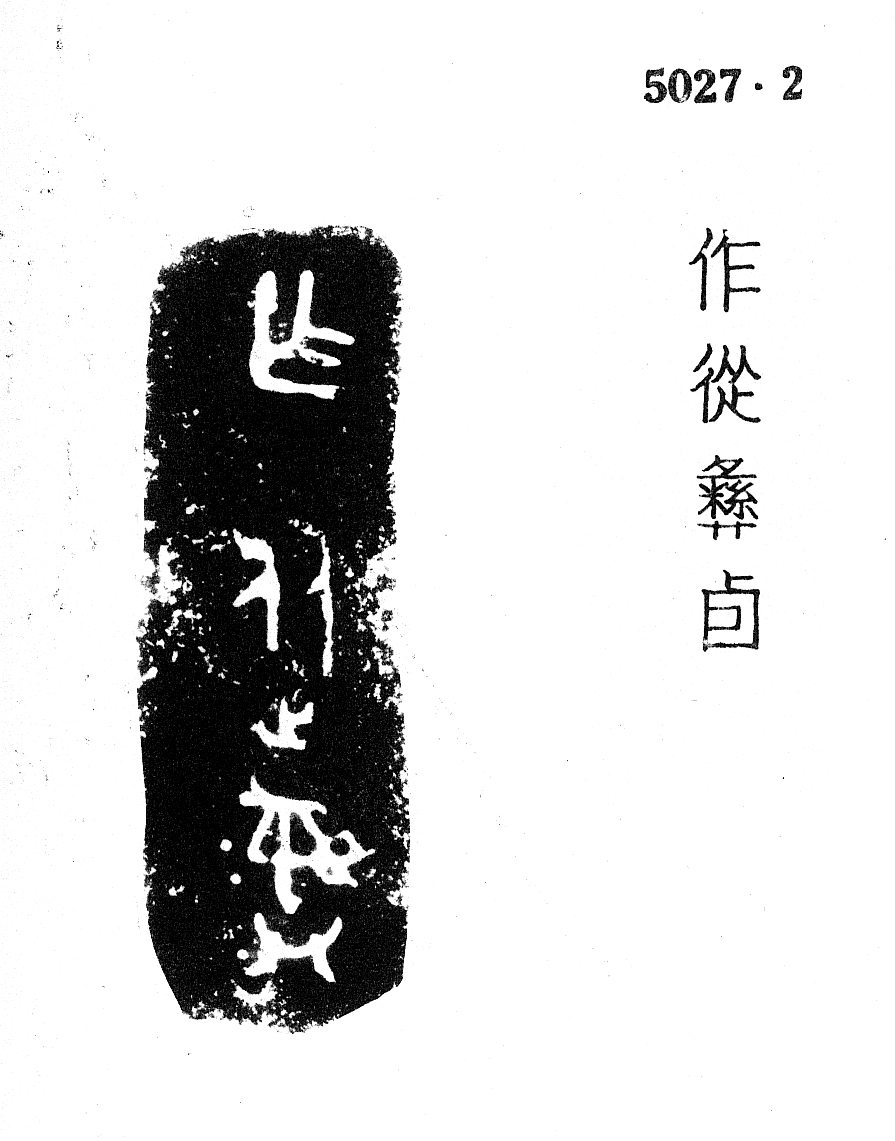 5027·2
作從彝